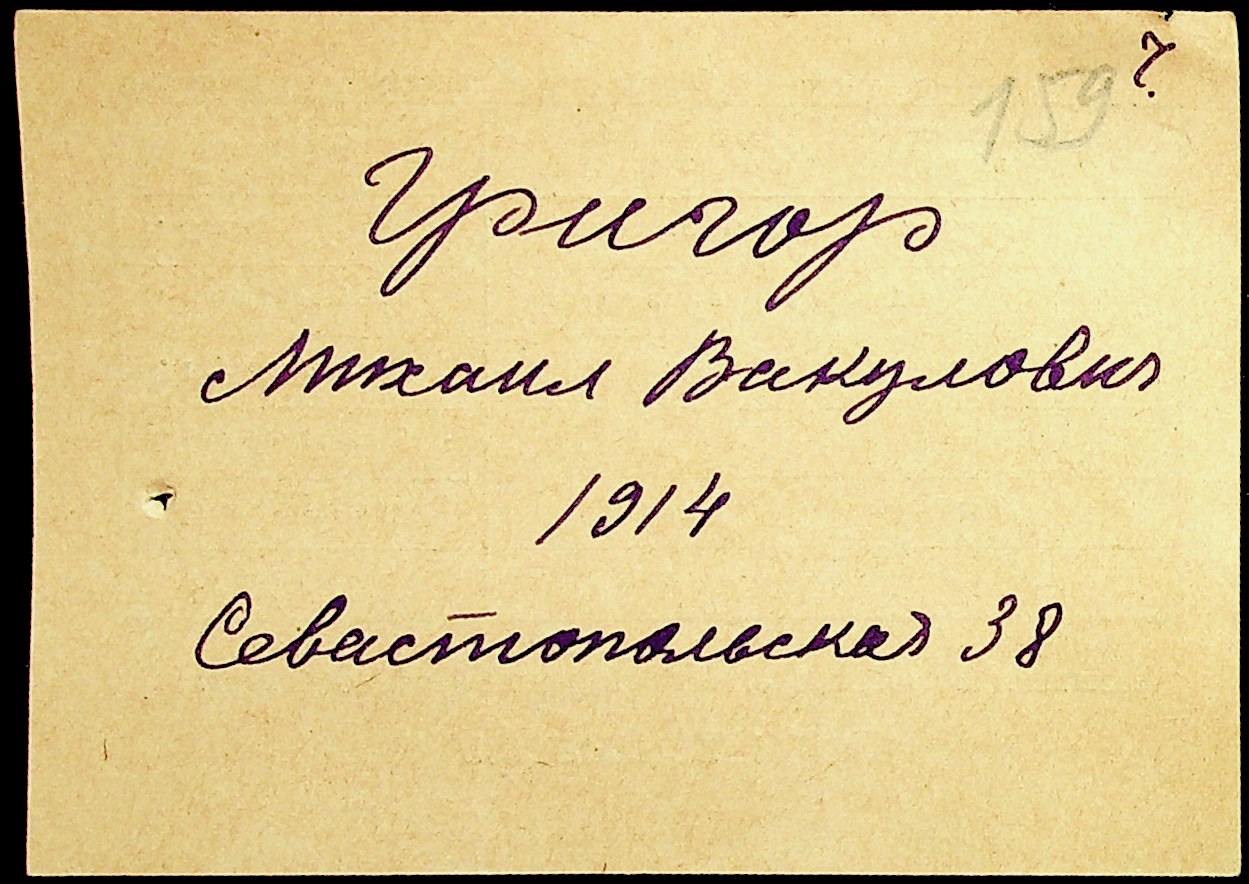 159
Григор
Михаил Вакулович
1914
Севастопольская 38